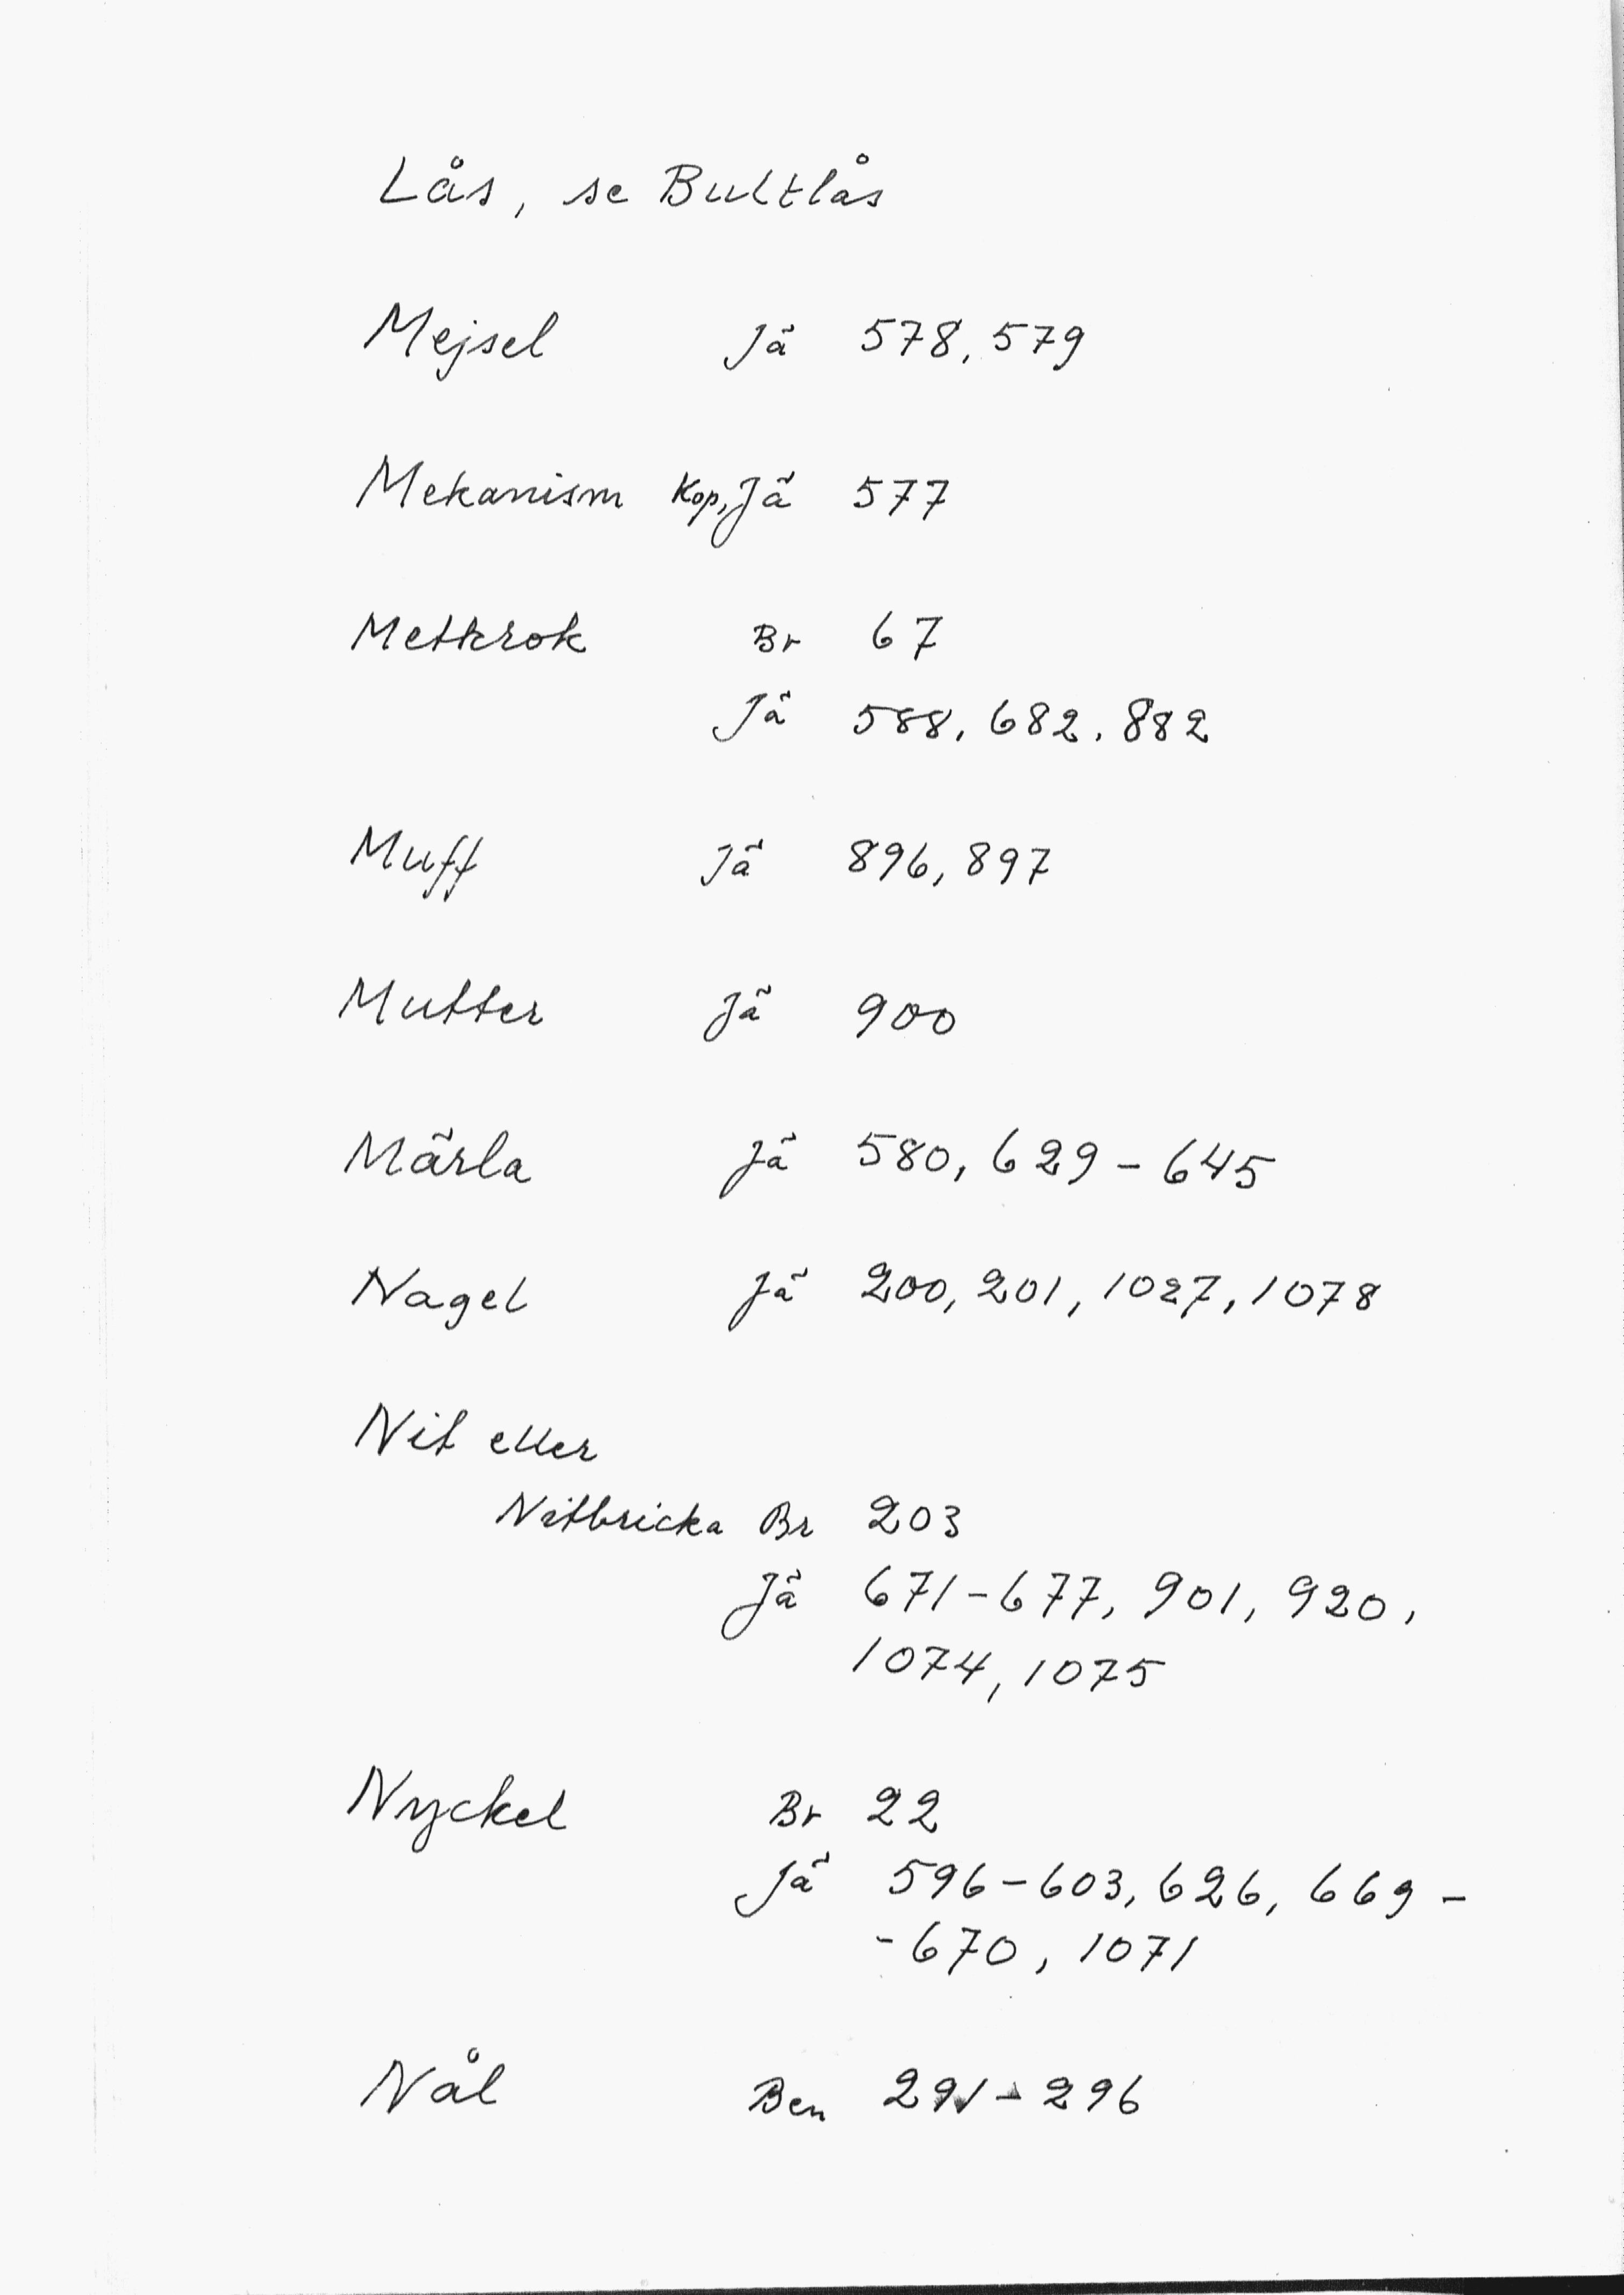 Lås, se Bultlås
Mejsel Jä 578, 579
Mekanism Kop, Jä 577
Metkrok Br 67
Jä 588, 682, 882
Muff Jä 896, 897
Mutter Jä 900
Märla Jä 580, 629 - 645
Nagel Jä 200, 201, 1027, 1078
Nit eller
Nitbricka Br 203
Jä 671 - 677, 901, 920,
1074, 1075
Nyckel Br 22
Jä 596 - 603, 626, 669 -
- 670, 1071
Nål Ben 291 - 296